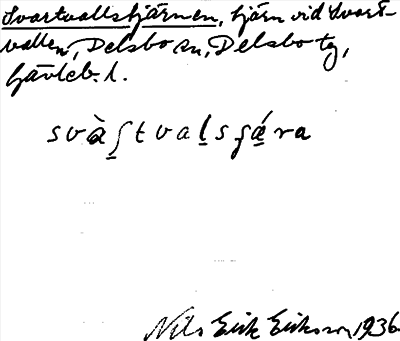 Svartvallstjärnen, tjärn vid Svart-
vallen, Delsbo sn, Delsbo tg,
Gävleb. l.
svàʃtvalsʃǽra
Nils Erik Eriksson 1936